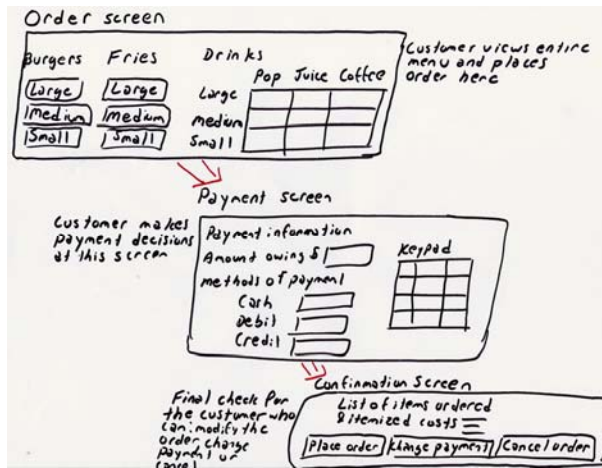 Order screen
Burgers Fries Drinks
Pop Juice Coffee
Large Large Large
Medium Medium medium
Small Small Small
Customer views entire
menu and places
order here
Payment screen
Customer makes
payment decisions
at this screen
Payment information
Amount owing $
methods of payment
Cash
Debit
Credit
Keypad
Confirmation Screen
Final check for
the customer who
can: modify the
order, change
payment or
cancel
List of items ordered
& itemized costs
Place order Change payment Cancel order